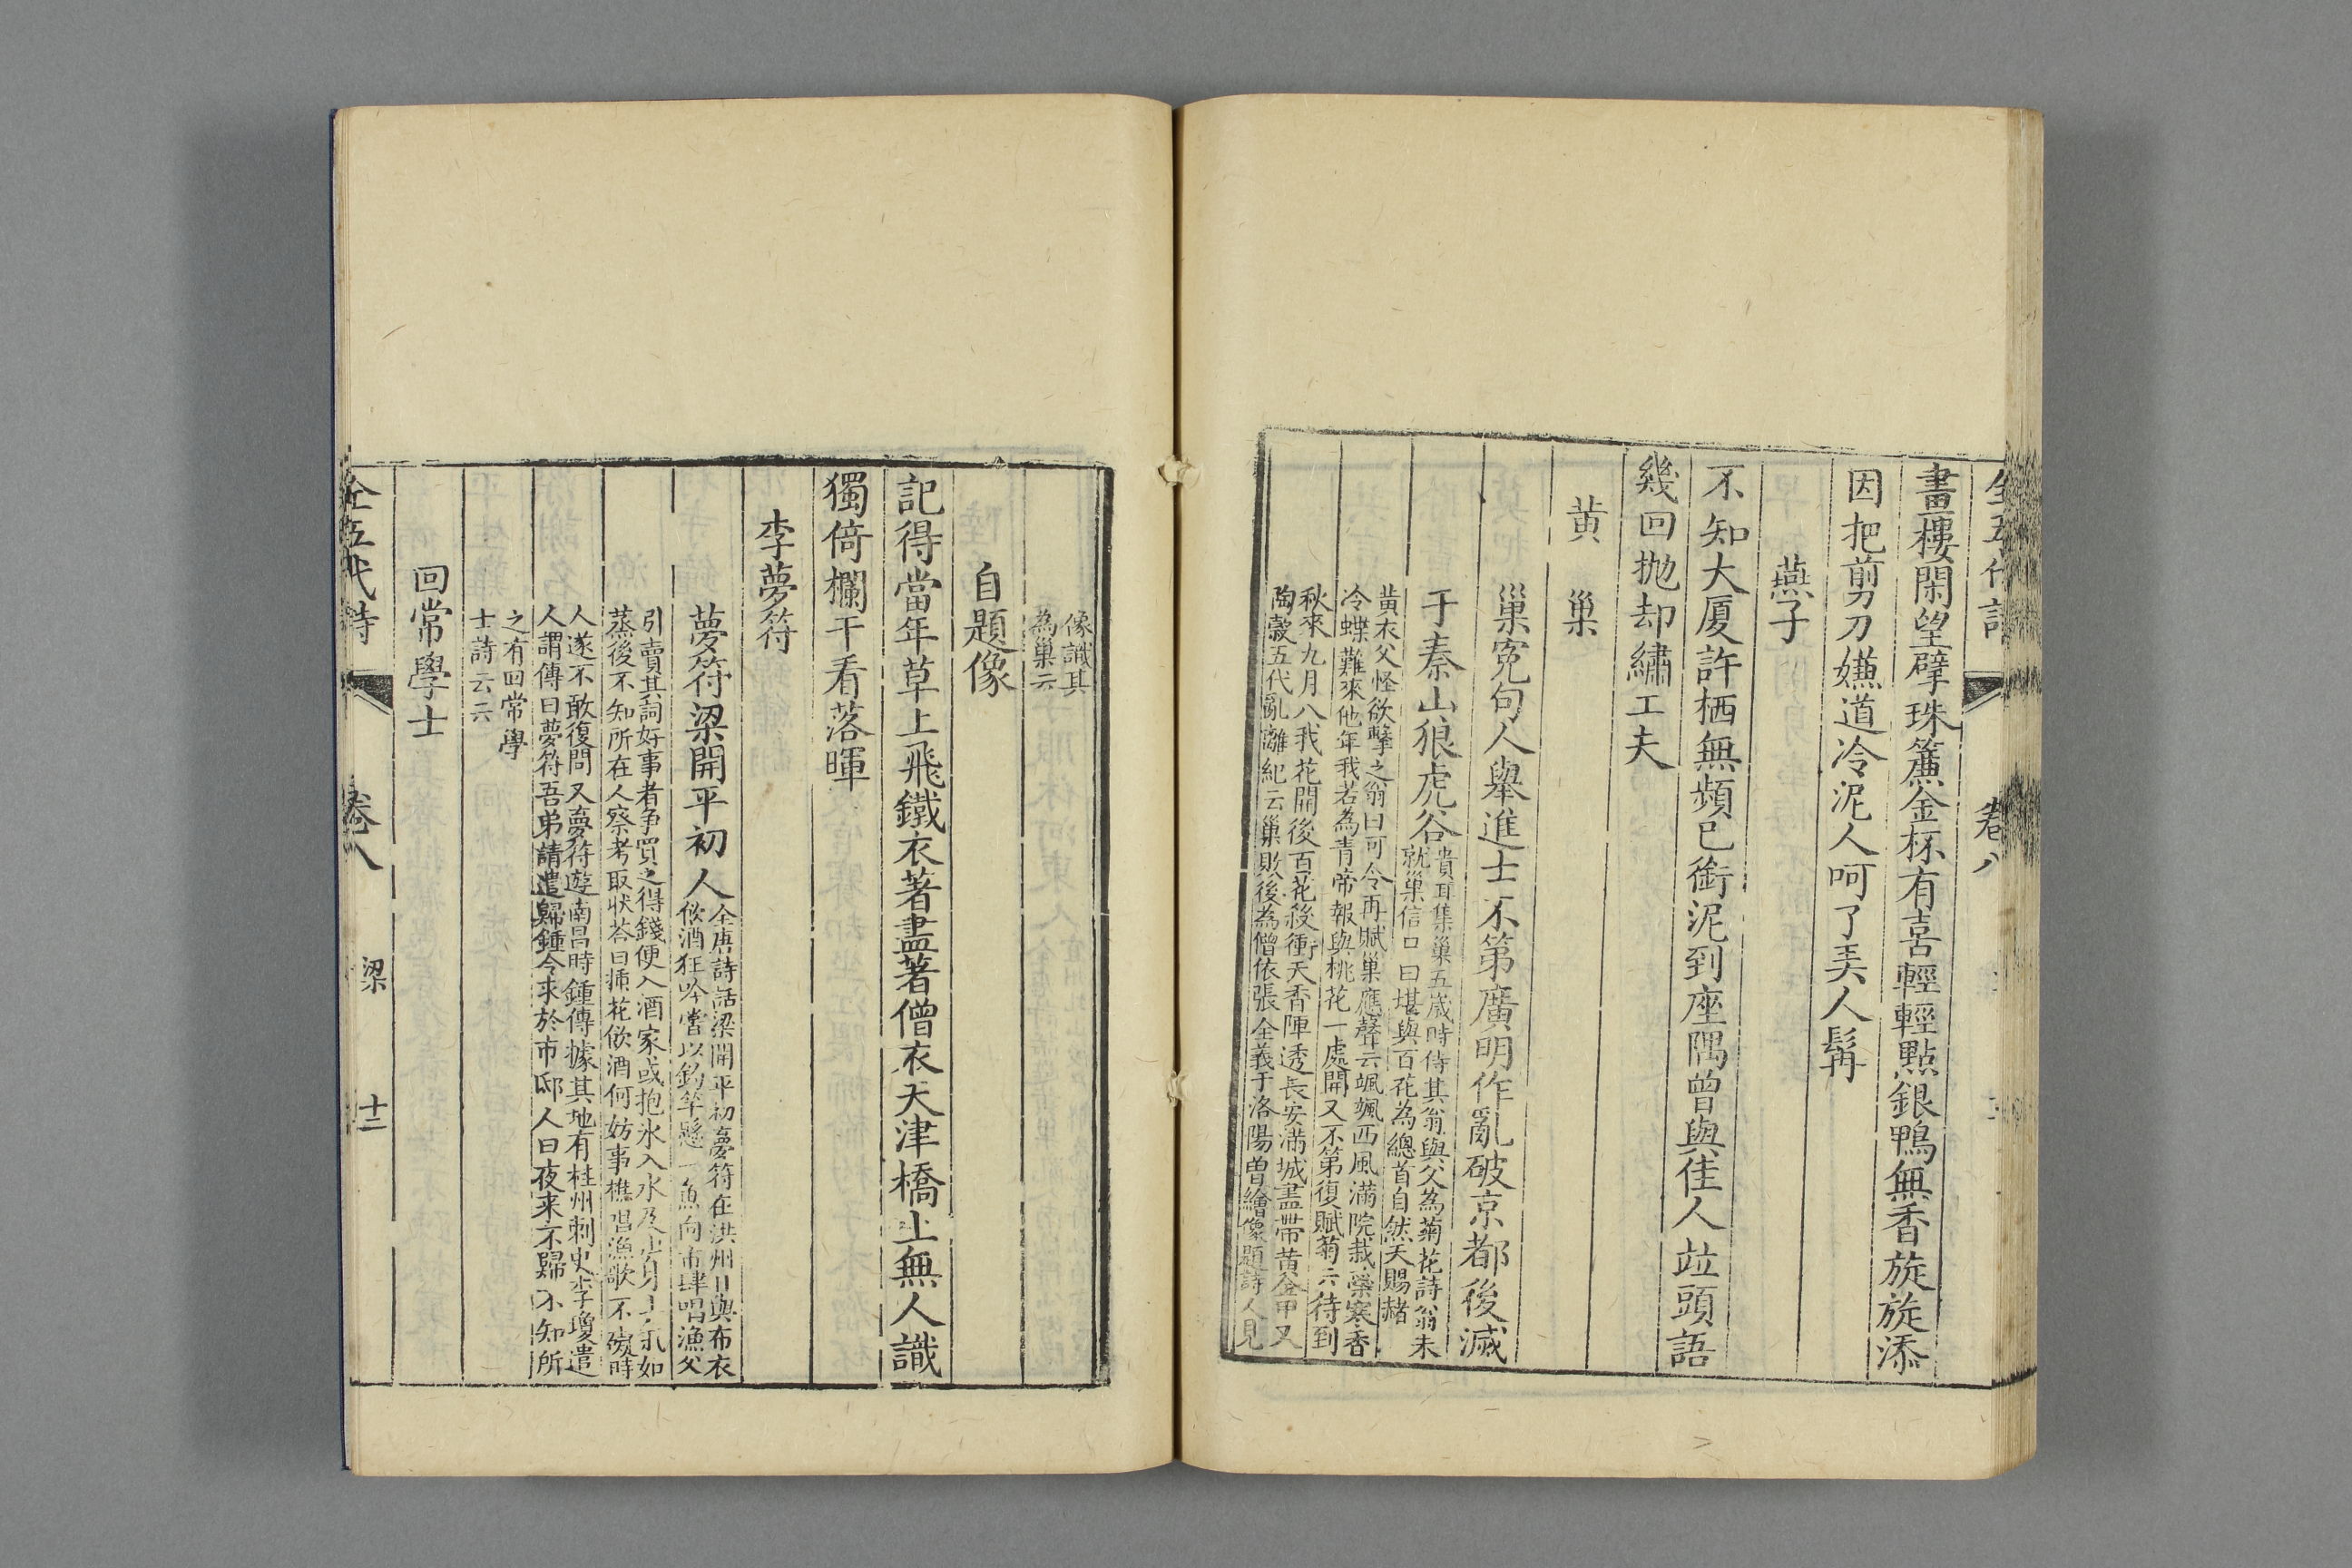 全五代詩 卷八
畫樓閑望擘珠簾金杯有喜輕輕點銀鴨無香旋旋添
因把剪刀嫌道冷泥人呵了弄人髯
燕子
不知大厦許栖無頻已銜泥到座隅曾與佳人竝頭語
幾回抛却繡工夫
黃巢
巢冤句人舉進士不第廣明作亂破京都後滅
于泰山狼虎谷
貴耳集巢五歲時侍其翁與父為菊花詩翁未
就巢信口曰堪與百花為總首自然天賜赭
黃衣父怪欲擊之翁曰可令再賦巢應聲云颯颯西風滿院栽蘂寒香
冷蝶難來他年我若為青帝報與桃花一處開又不第復賦菊云待到
秋來九月八我花開後百花殺衝天香陣透長安滿城盡帶黃金甲又
陶穀五代亂離紀云巢敗後為僧依張全義于洛陽曾繪像題詩人見
像識其
為巢云
自題像
記得當年草上飛鐵衣著盡著僧衣天津橋上無人識
獨倚欄干看落暉
李夢符
夢符梁開平初人
全唐詩話梁開平初夢符在洪州日與布衣
飲酒狂吟嘗以釣竿懸一魚向市肆唱漁父
引賣其詞好事者争買之得錢便入酒家或抱氷入水及出身上氣如
蒸後不知所在人察考取狀荅曰揷花飲酒何妨事樵唱漁歌不礙時
人遂不敢復問又夢符遊南昌時鍾傳據其地有桂州刺史李瓊遣
人謂傳曰夢符吾弟請遣歸鍾令求於市邸人曰夜来不歸不知所
之有回常學
士詩云云
回常學士
全五代詩 卷八 梁 十三